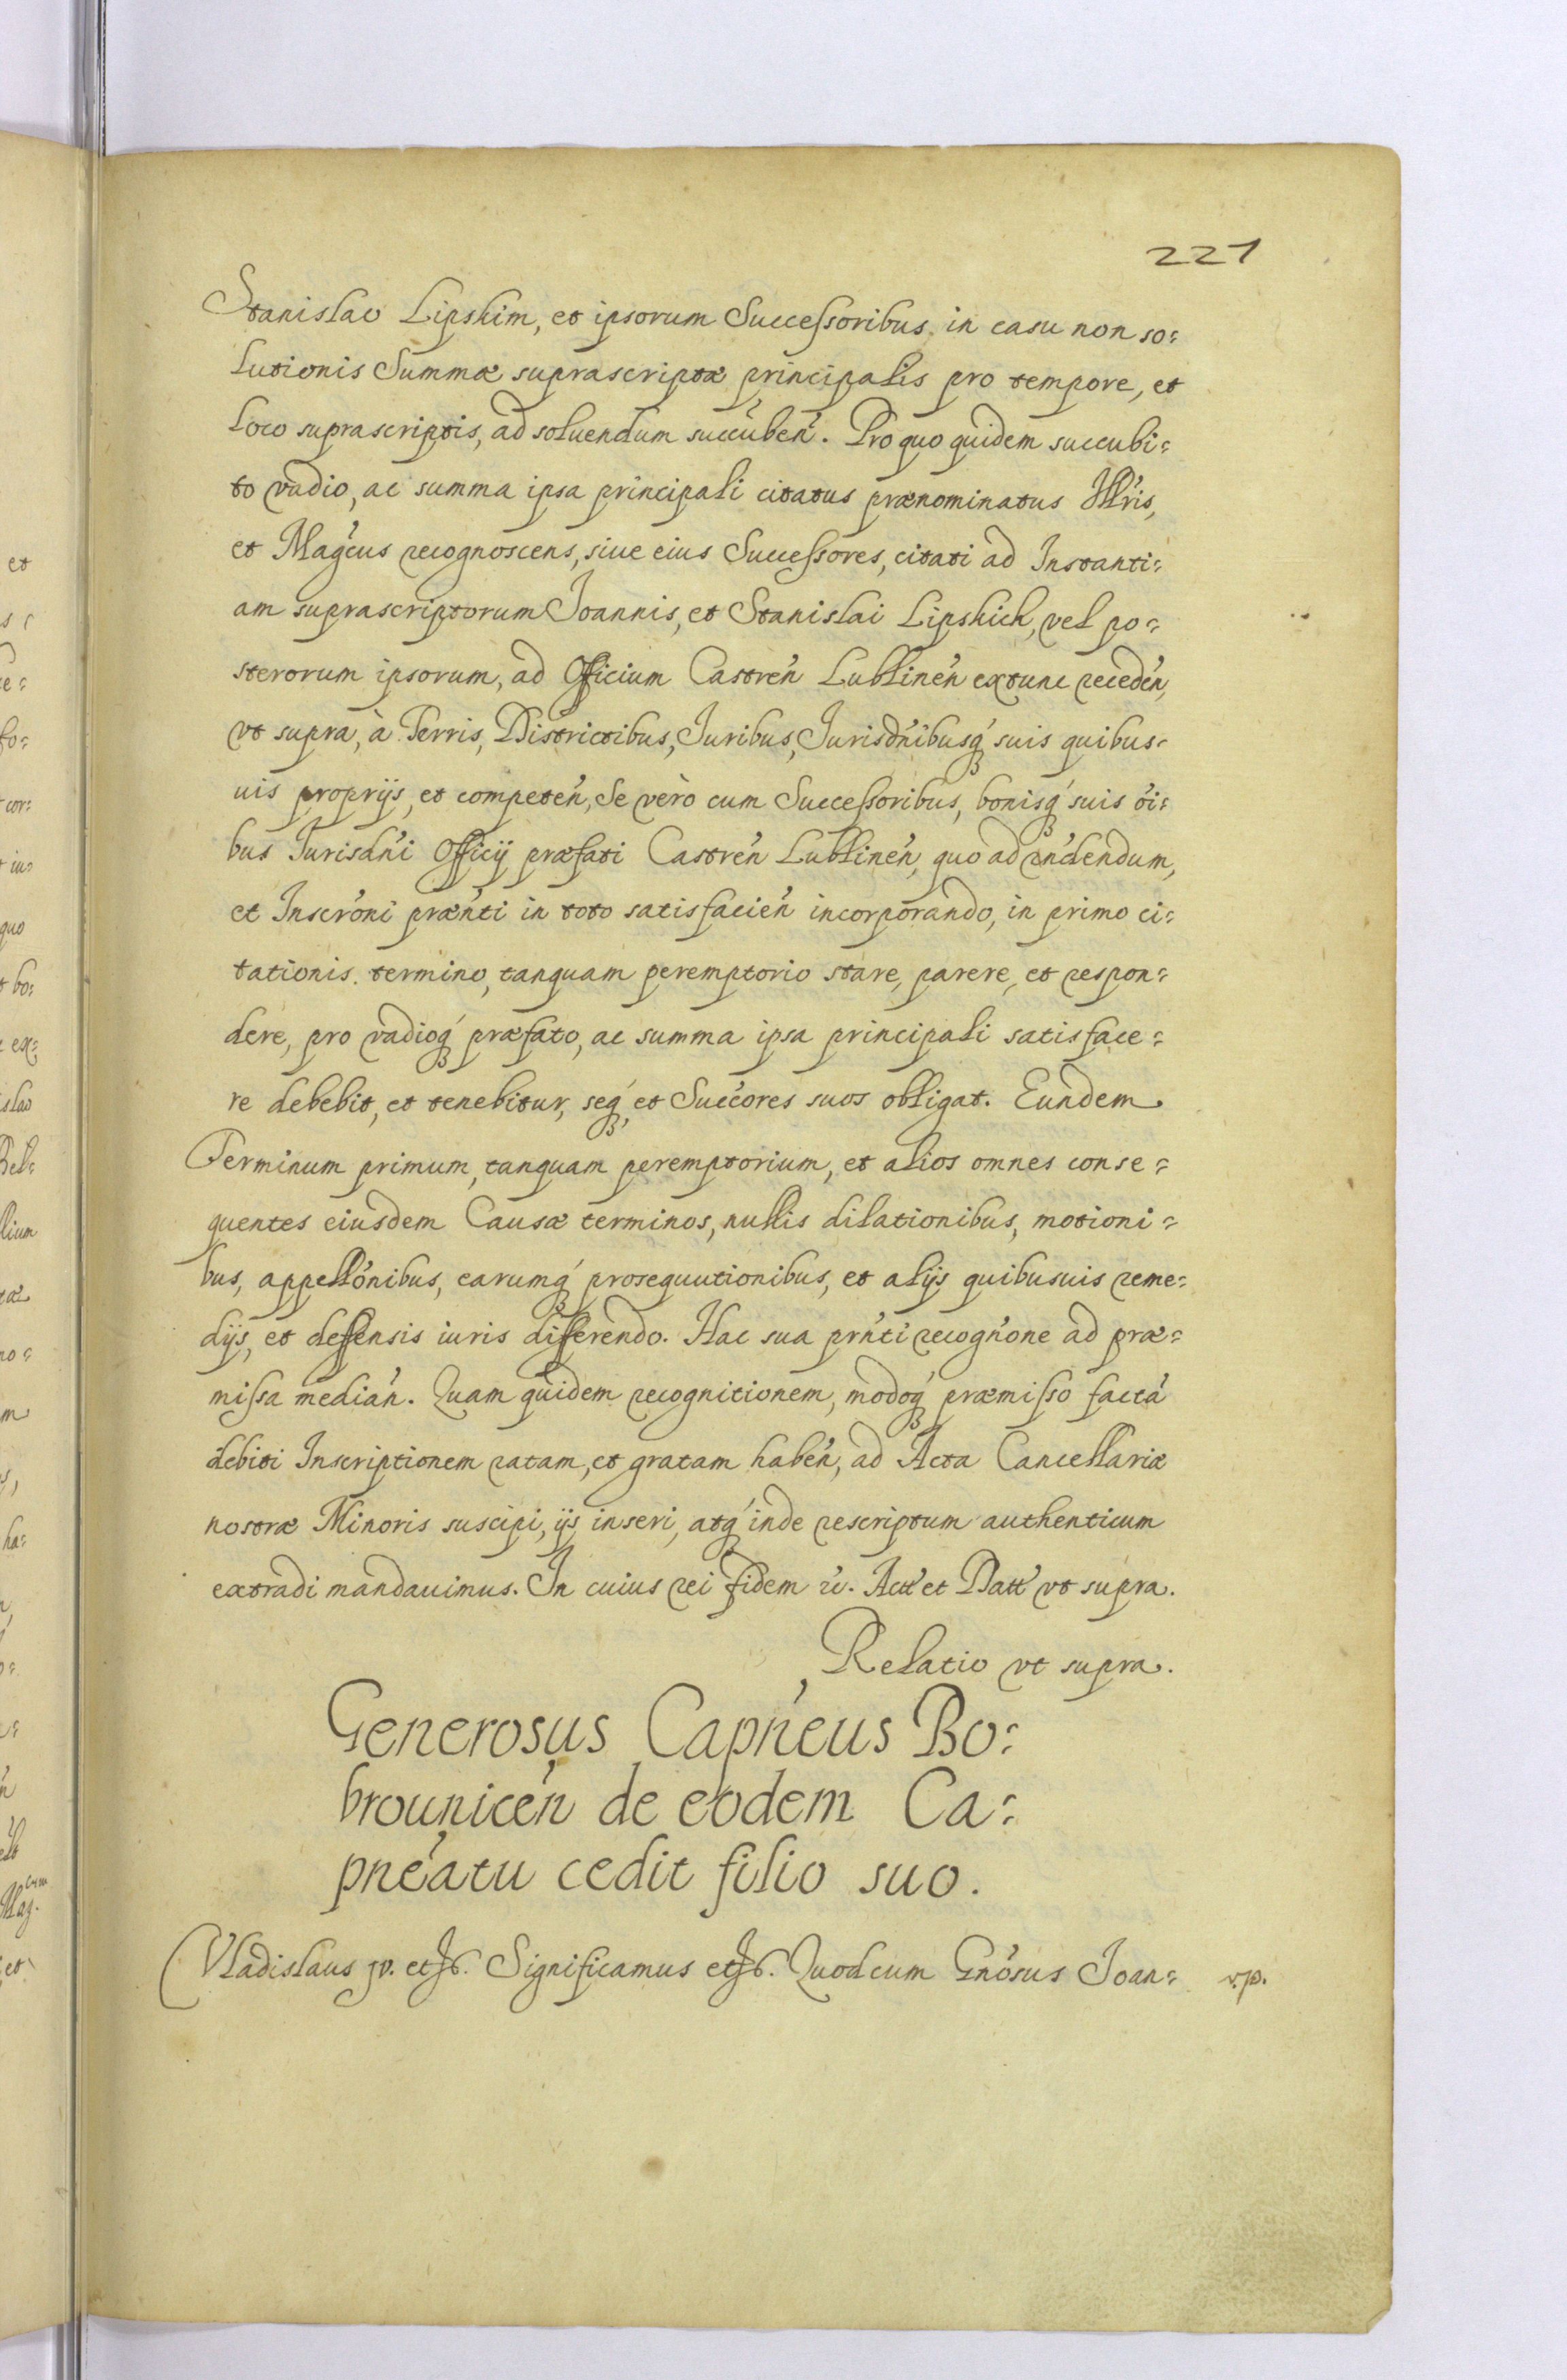 221
Stanislao Lipskim, et ipsorum Successoribus in casu non so=
lutionis Summæ suprascriptæ principalis pro tempore, et
loco suprascriptis, ad soluendum succuben̄. Pro quo quidem succubi=
to vadio, ac summa ipsa principali citatus prænominatus Illris,
et Magcus recognoscens, siue eius Successores, citati ad Instanti=
am suprascriptorum Joannis, et Stanislai Lipskich, vel po=
sterorum ipsorum, ad Officium Castren̄ Lublinen̄ extunc receden̄,
vt supra, à Terris, Districtibus, Juribus, Jurisdn̄ibusq́ suis quibus=
uis proprijs, et competen̄, Se verò cum Successoribus, bonisq́ suis oı̄=
bus Jurisdn̄i Officij præfati Castren̄ Lublinen̄, quo ad rn̄dendum,
et Inscrōni præn̄ti in toto satisfacien̄ incorporando, in primo ci=
tationis termino, tanquam peremptorio stare, parere, et respon=
dere, pro vadioq́ præfato, ac summa ipsa principali satisface=
re debebit, et tenebitur, seq́, et Succores suos obligat. Eundem
Terminum primum, tanquam peremptorium, et alios omnes conse=
quentes eiusdem Causæ terminos, nullis dilationibus, motioni=
bus, appellōnibus, earumq́ prosequutionibus, et alijs quibusuis reme=
dijs, et deffensis iuris differendo. Hac sua prn̄ti recogn̄one ad præ=
missa median̄. Quam quidem recognitionem, modoq́ præmisso factā
debiti Inscriptionem ratam, et gratam haben̄, ad Acta Cancellariæ
nostræ Minoris suscipi, ijs inseri, atq́ inde rescriptum authenticum
extradi mandauimus. In cuius rei fidem etc. Actt et Datt vt supra.
Relatio vt supra.
Generosus Capn̄eus Bo=
brounicen̄ de eodem Ca=
pnēatu cedit filio suo.
Vladislaus IV. etc. Significamus etc. Quod cum Gnōsus Joan= v.p.